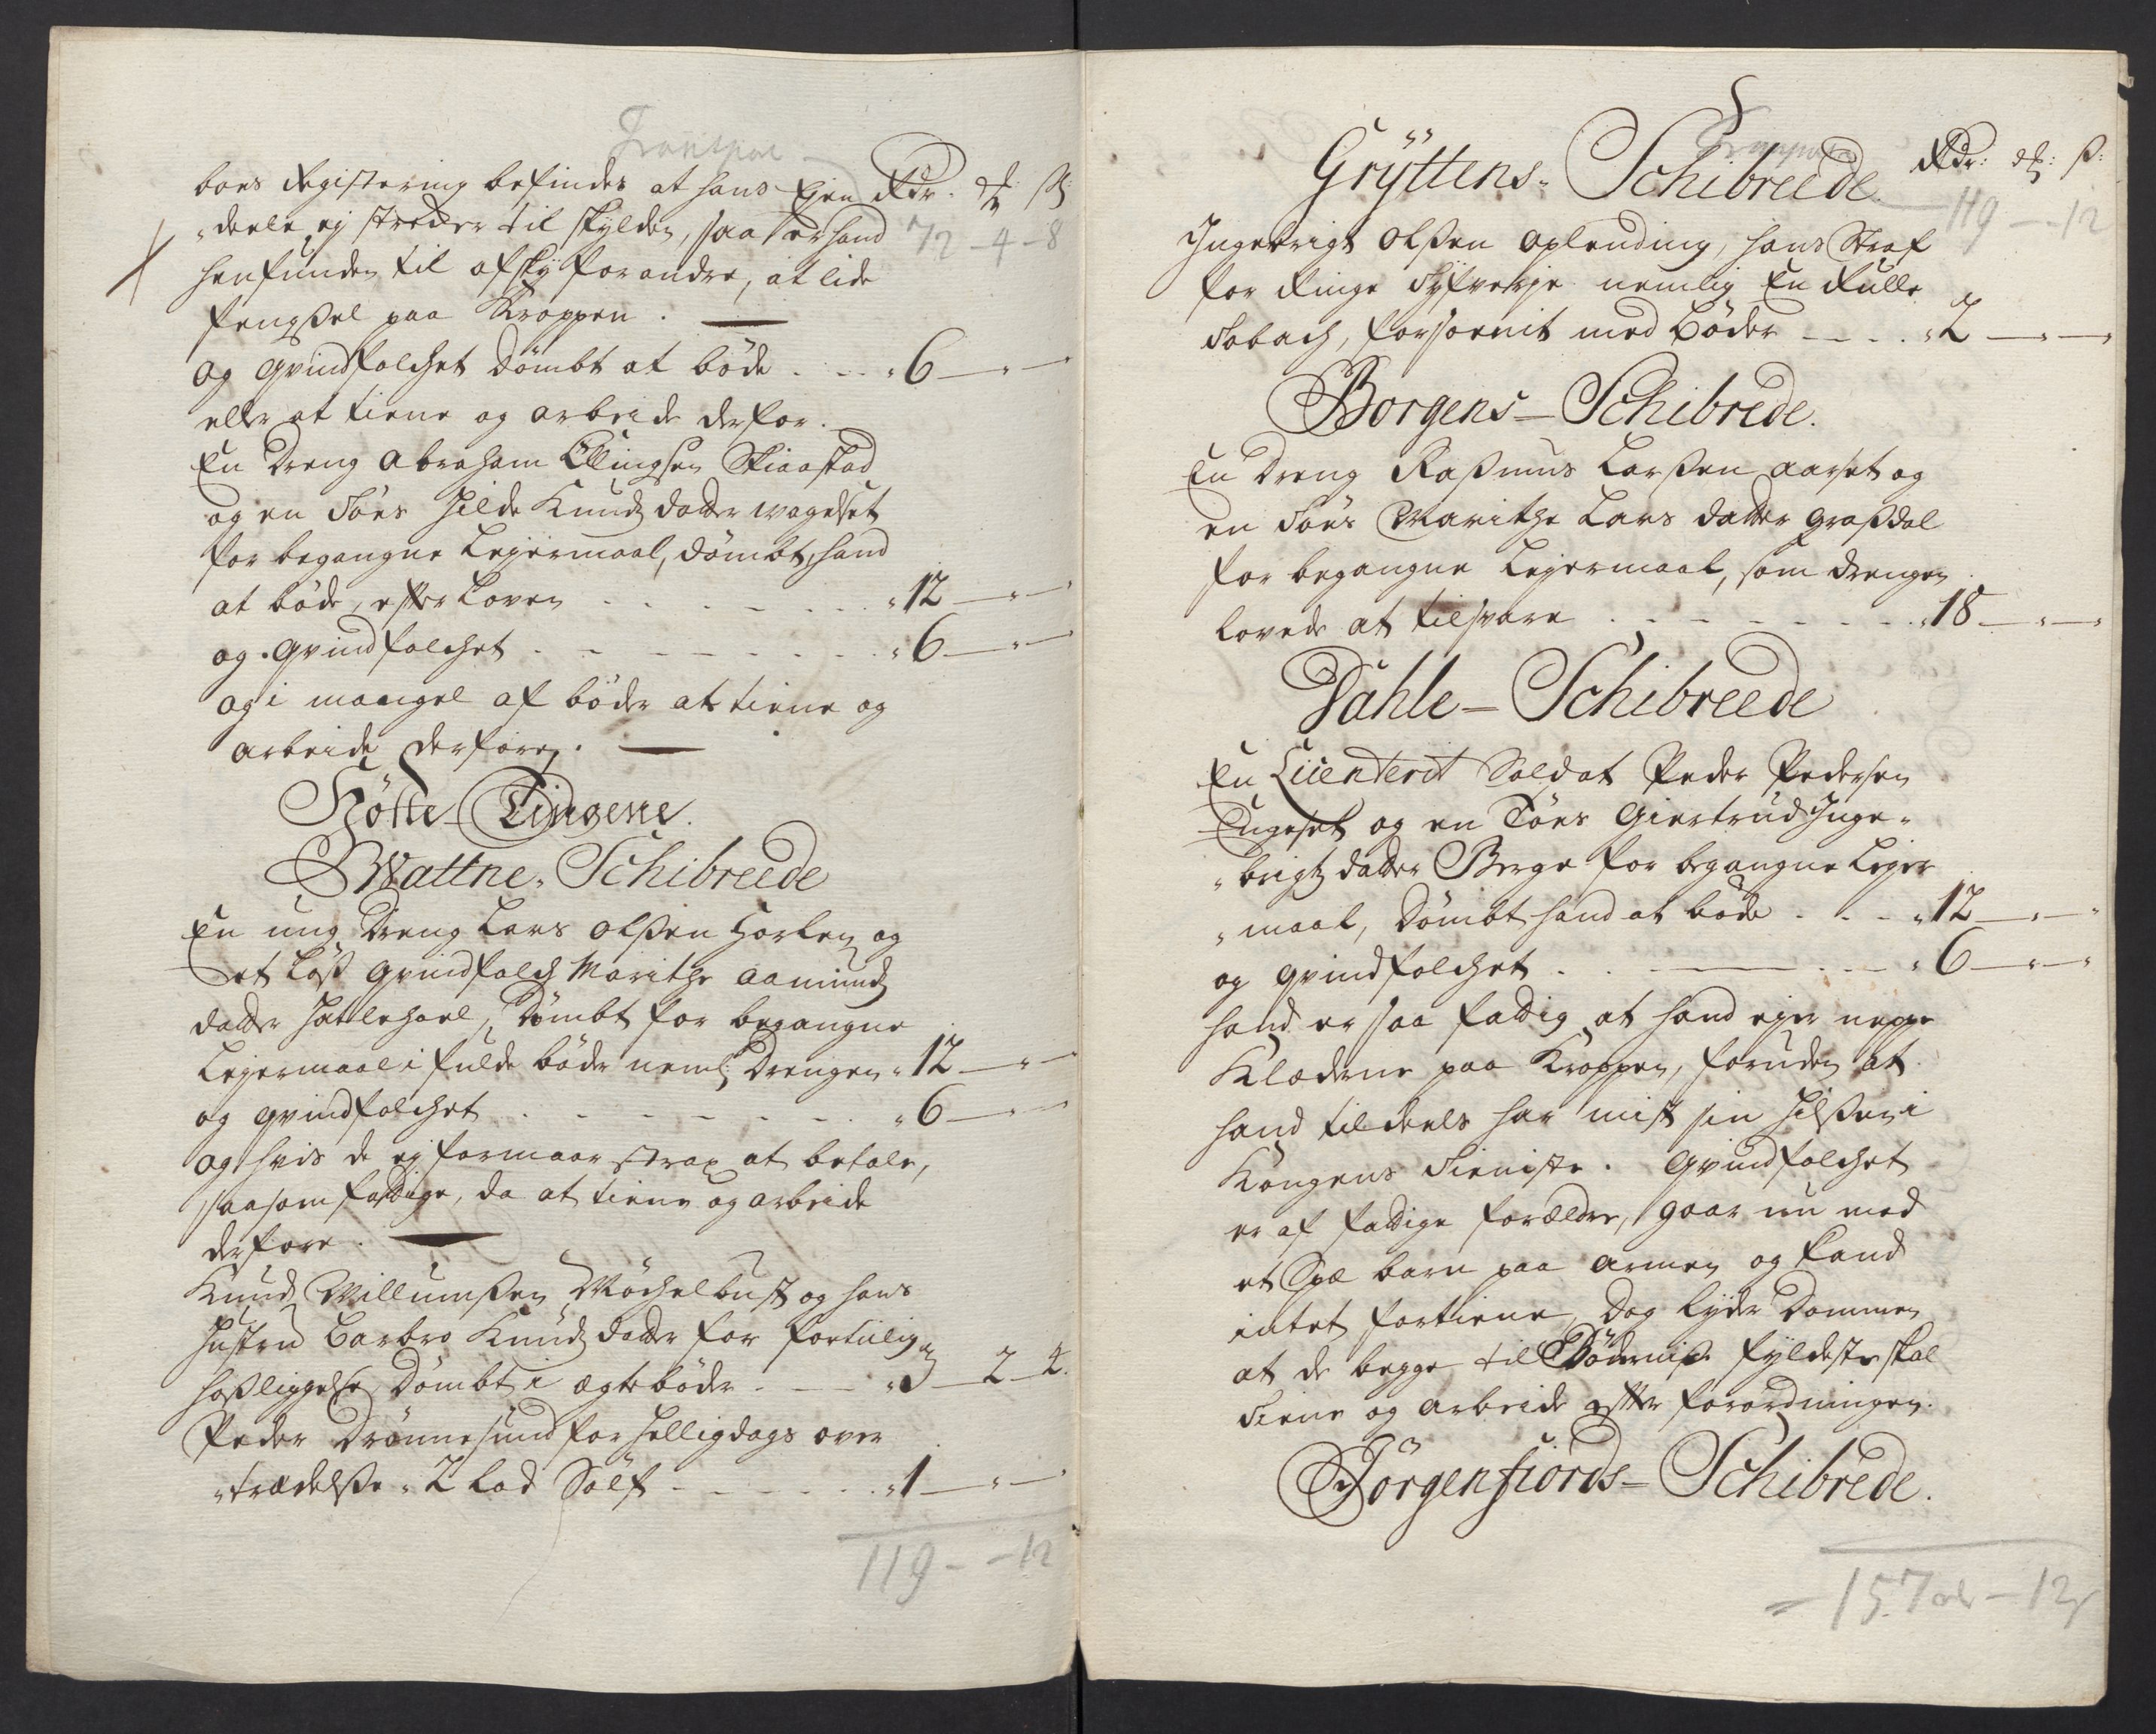 Transport
boes Registering befindes at hans Ejen Rdr. ort ß
deele ej strecker til skylden, saa er hand 72 - 4 - 8
henfunden til afsky for andre, at lide
fengßel paa Kroppen.
og qvindfolchet dömbt at böde 6
eller at tiene og arbeide derfor.
En dreng Abraham Ellingsen Skiaastad
og en Töes Silde Knudsdatter
for begangne Lejermaal, dömbt, hand
at böde, efter Loven 12
og qvindfolchet 6
og i mangel af böder at tiene og
arbeide derfore.
Höste-Tingene.
Wattne-Schibreede
En ung dreng Lars Olßen Horlen og
et löst qvindfolch Marithe Aamunds
datter, dömbt for begangne
Lejermaal i fulde böder neml: drengen 12
og qvindfolchet 6
og hvis de ej formaar strax at betale,
saasom fattige, da at tiene og arbeide
derfore.
Knud Willumßen Möchelbust og hans
Hustru Barbro Knudsdatter for fortiilig
hoßliggelse dömbt i ægtebøder 3 2 4.
Peder Drönnesund for Helligdags over
trædelße 2 Lod Sölf 1
119 - - 12
Gryttens-Schibreede Rdr: ort: ß:
Transport 119 - 12
Ingebrigt Olßen Oplending, hans Straf
for ringe nemlig En Rulle
Tobach, forsoenit med böder 2
Borgens-Schibrede.
En dreng Raßmus Larßen Aarset og
en Töes Marithe Lars datter Graßdal
for begangne Lejermaal, som drengen
lovede at tilsvare 18
Dahle-Schibreede
En Licenterit Soldat Peder Pedersen
Engeset og en Töes Giertrud Inge-
brigts datter Berge for begangne Lejer
maal, dömbt hand at böde 12
og qvindfolchet 6
hand er saa fattig at hand ejer neppe
Klæderne paa Kroppen, foruden at
hand tildeels har mist sin Helßen i
Kongens Tieniste. Qvindfolchet
er af fattige forældre, gaar nu med
et Spæ barn paa armen og kand
intet fortiene, dog lyder Dommen
at de begge til Bödernis fyldeste skal
tiene og arbeide efter forordningen.
Jörgenfiords-Schibrede.
157 rdr - 12 ß